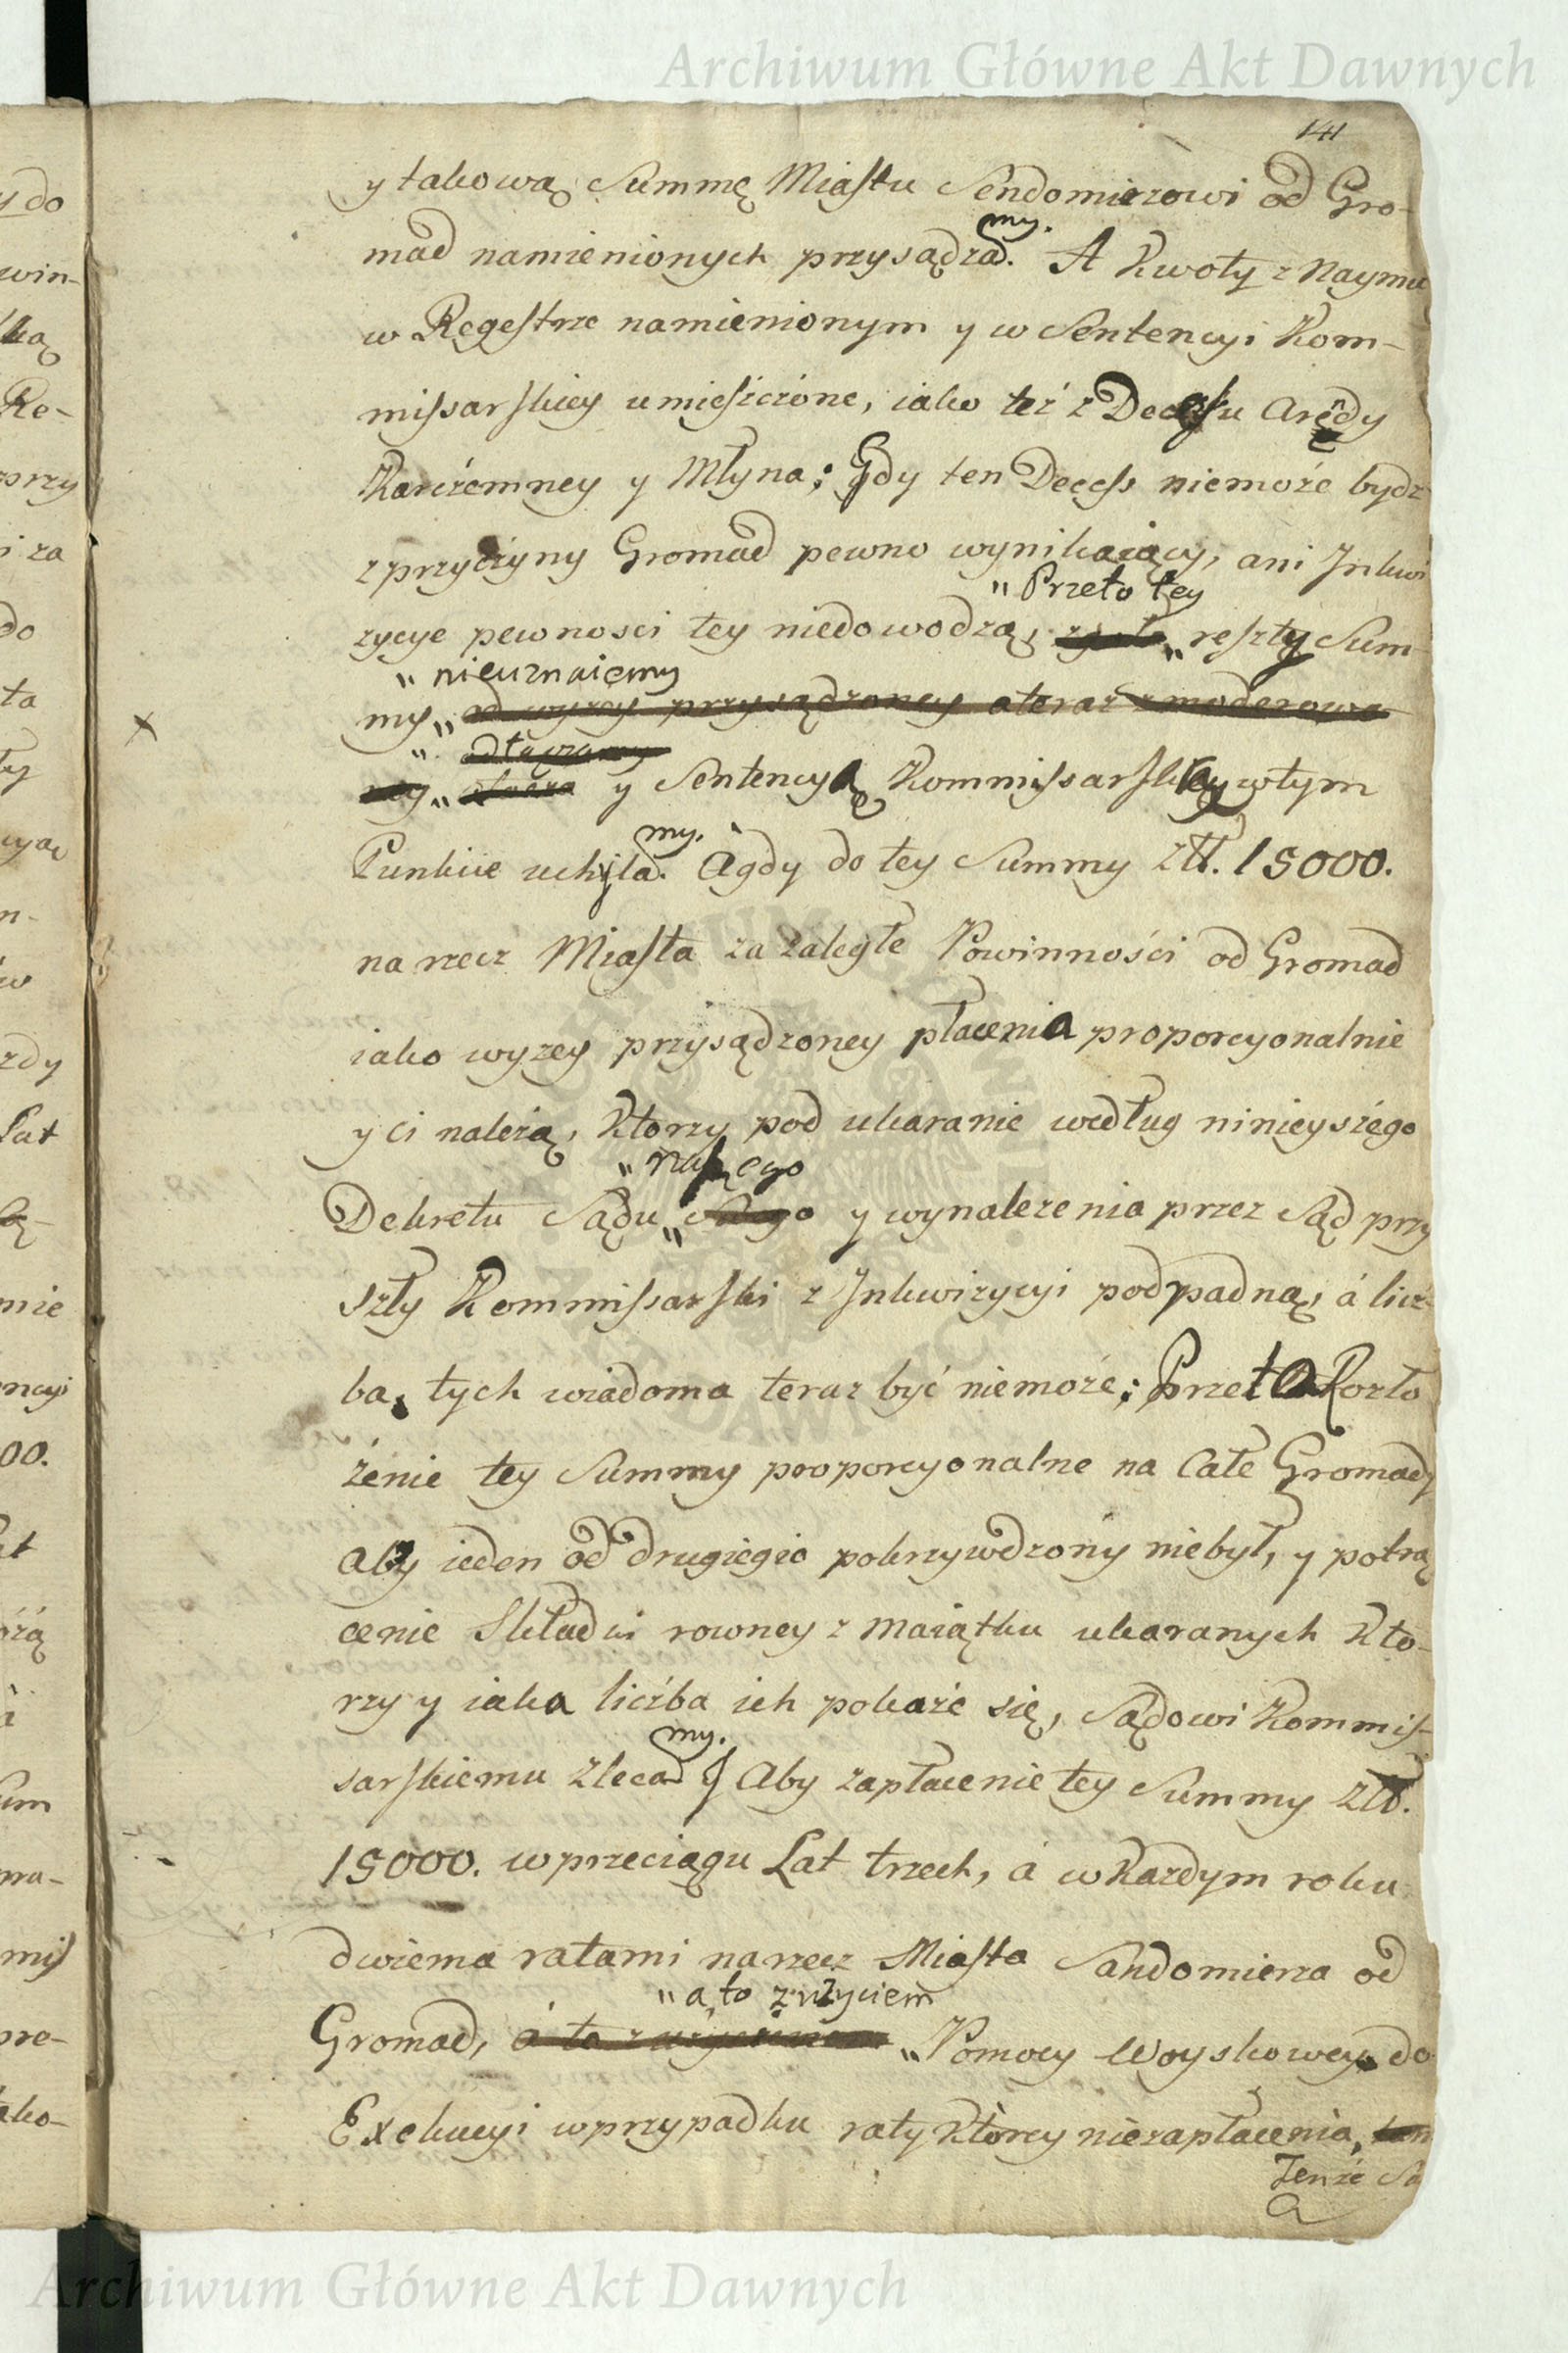 Archiwum Główne Akt Dawnych
141
y takową Summę Miastu Sendomirzowi od Gro-
my.
mad namienionych przysądza. A Kwoty z Naymu
w Regestrze namienionym y w Sentencyi Kom-
missarskiey umieszczone, iako też z Decessu Arędy
Karczemney y Młyna; Gdy ten Decess niemoże bydz
z przyczyny Gromad pewno wynikaiący, ani Inkwi
" Przeto tey
zycye pewnosci tey niedowodzą, " reszty Sum-
" nieuznaiemy
my " od wyzey przysądzoney a teraz zmoderowa
" odłączamy
ney " y Sentencyą Kommissarską w tym
my.
Punkcie uchyla. A gdy do tey Summy Złł. 15000.
na rzecz Miasta za zaległe Powinności od Gromad
iako wyzey przysądzoney płacenia proporcyonalnie
y ci należą, Ktorzy pod ukaranie według ninieyszego
" naszego
Dekretu Sądu " y wynalezenia przez Sąd przy
szły Kommissarski z Inkwizycyi podpadną, á licz-
ba tych wiadoma teraz być niemoże; Przeto Rozło
żenie tey Summy proporcyonalne na Całe Gromady
Aby ieden od drugiego pokrzywdzony niebył, y potrą
cenie Składki rowney z Maiątku ukaranych Kto-
rzy y iaka liczba ich pokaże się, Sądowi Kommis-
my.
sarskiemu zleca Aby zapłacenie tey Summy Złł.
15000. w przeciągu Lat trzech, á w Każdym roku
dwiema ratami na rzecz Miasta Sandomierza od
" a to z użyciem
Gromad, á to z użyciem " Pomocy Woyskowey do
Exekucyi w przypadku raty Ktorey niezapłacenia, ten
Tenże Są
Archiwum Główne Akt Dawnych